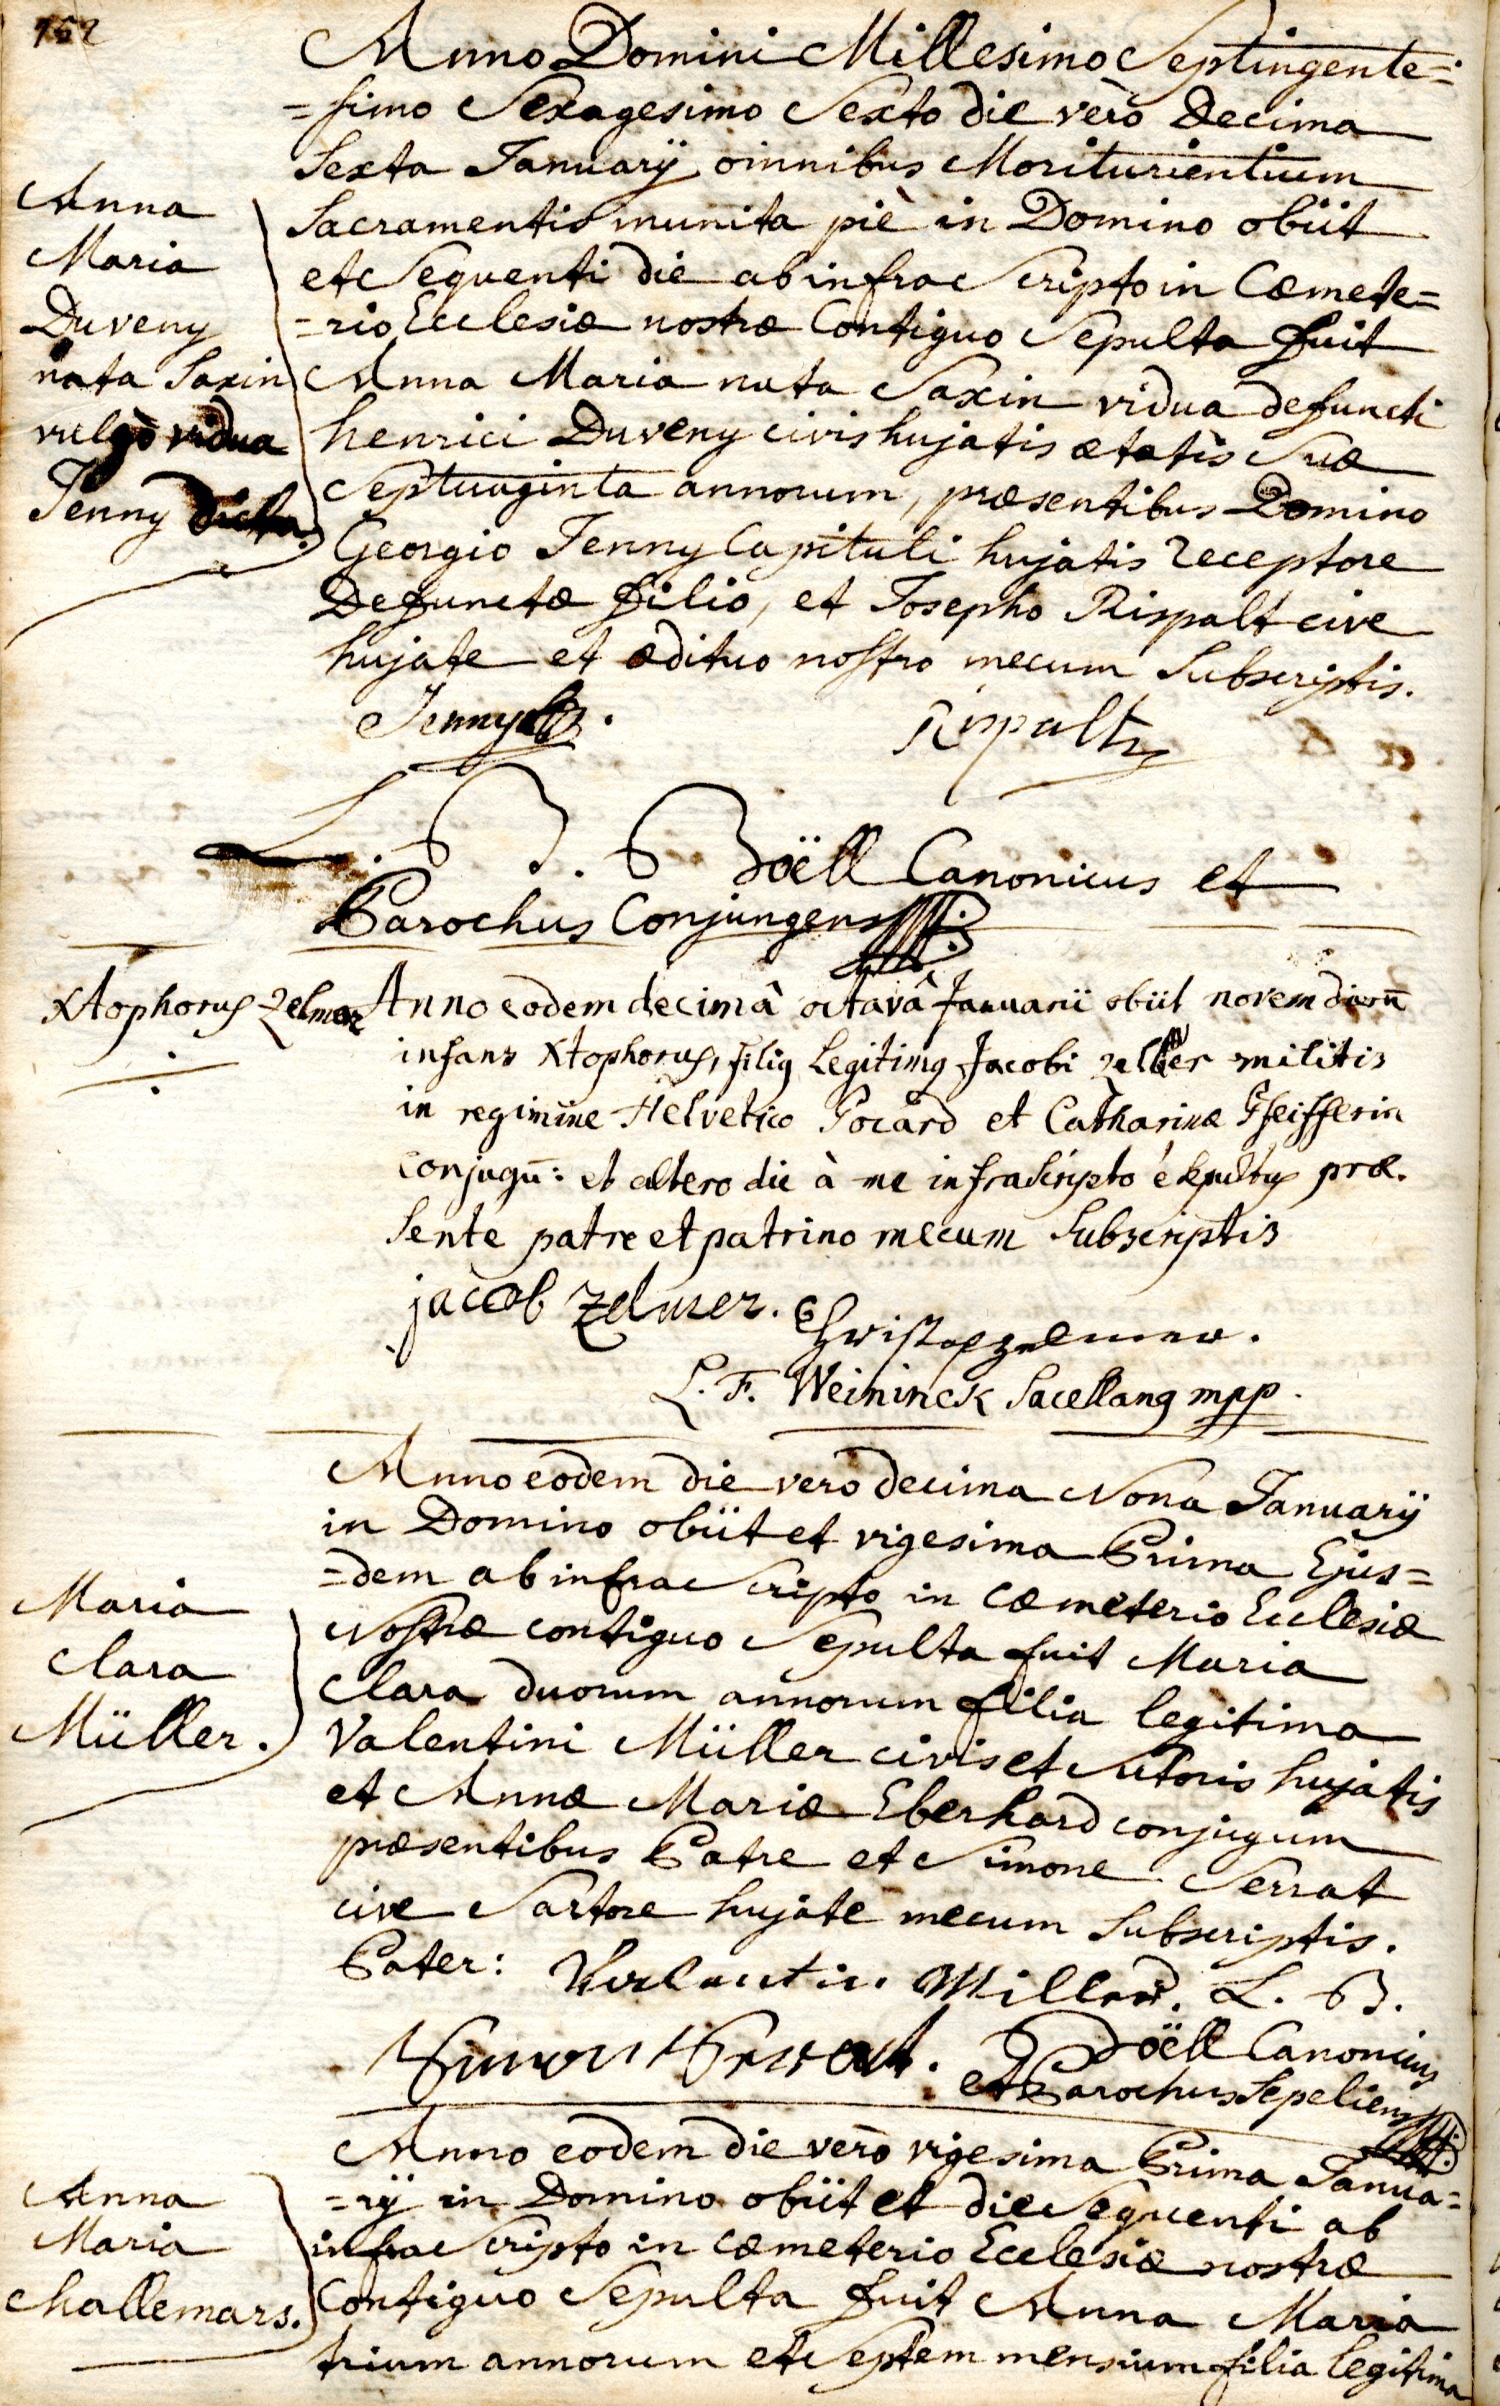 152
Anno Domini Millesimo Septingente=
=simo Sexagesimo Sexto die verò Decima
Sexta Januarij omnibus Moriturientium
Sacramentis munita piè in Domino obiit
et Sequenti die ab infra Scripto in Cæmete=
=rio Ecclesiæ nostræ Contiguo Sepulta fuit
Anna Maria nata Saxin vidua defuncti
henrici Duveny civis hujatis ætatis Suæ
Septuaginta annorum, præsentibus Domino
Georgio Jenny Capituli hujatis receptore
Defunctæ filio, et Josepho Rispalt cive
hujate et ædituo nostro mecum Subscriptis.
Anna
Maria
Duveny
nata Saxin
vulgò vidua
Jenny dicta.
Jenny
Rispalt
L. B. Doëll Canonicus et
Parochus Conjungens
Xtophorus Zelmer
Anno eodem decimâ octavâ Januarii obiit novem dierū
infans Xtophorus, filiq Legitimq Jacobi zelmer militis
in regimine Helvetico Pocard et Catharinæ Pfeifferin
conjugū: et altero die à me infrascripto è sepultus præ.
sente patre et patrino mecum Subscriptis
jacob Zelmer.
Christop zelmer.
L. F. Weininck Sacellanq mpp.
Anno eodem die vero decima Nona Januarij
in Domino obiit et vigesima Prima Ejus=
=dem ab infra Scripto in cæmeterio Ecclesiæ
Nostræ contiguo Sepulta fuit Maria
Clara duorum annorum filia legitima
Valentini Müller civis et Sutoris hujatis
et Annæ Mariæ Eberhard conjugum
præsentibus Patre et Simone Serrat
cive Sartore hujate mecum Subscriptis.
Maria
Clara
Müller.
Pater: Valentin Miller. L. B.
Simon Serrat. Doëll Canonicus
et Parochus Sepeliens
Anno eodem die verò vigesima Prima Janua=
=rij in Domino obiit et die Sequenti ab
infra Scripto in cæmeterio Ecclesiæ nostræ
Contiguo Sepulta fuit Anna Maria
trium annorum et Septem mensium filia legitima
Anna
Maria
Challemars.